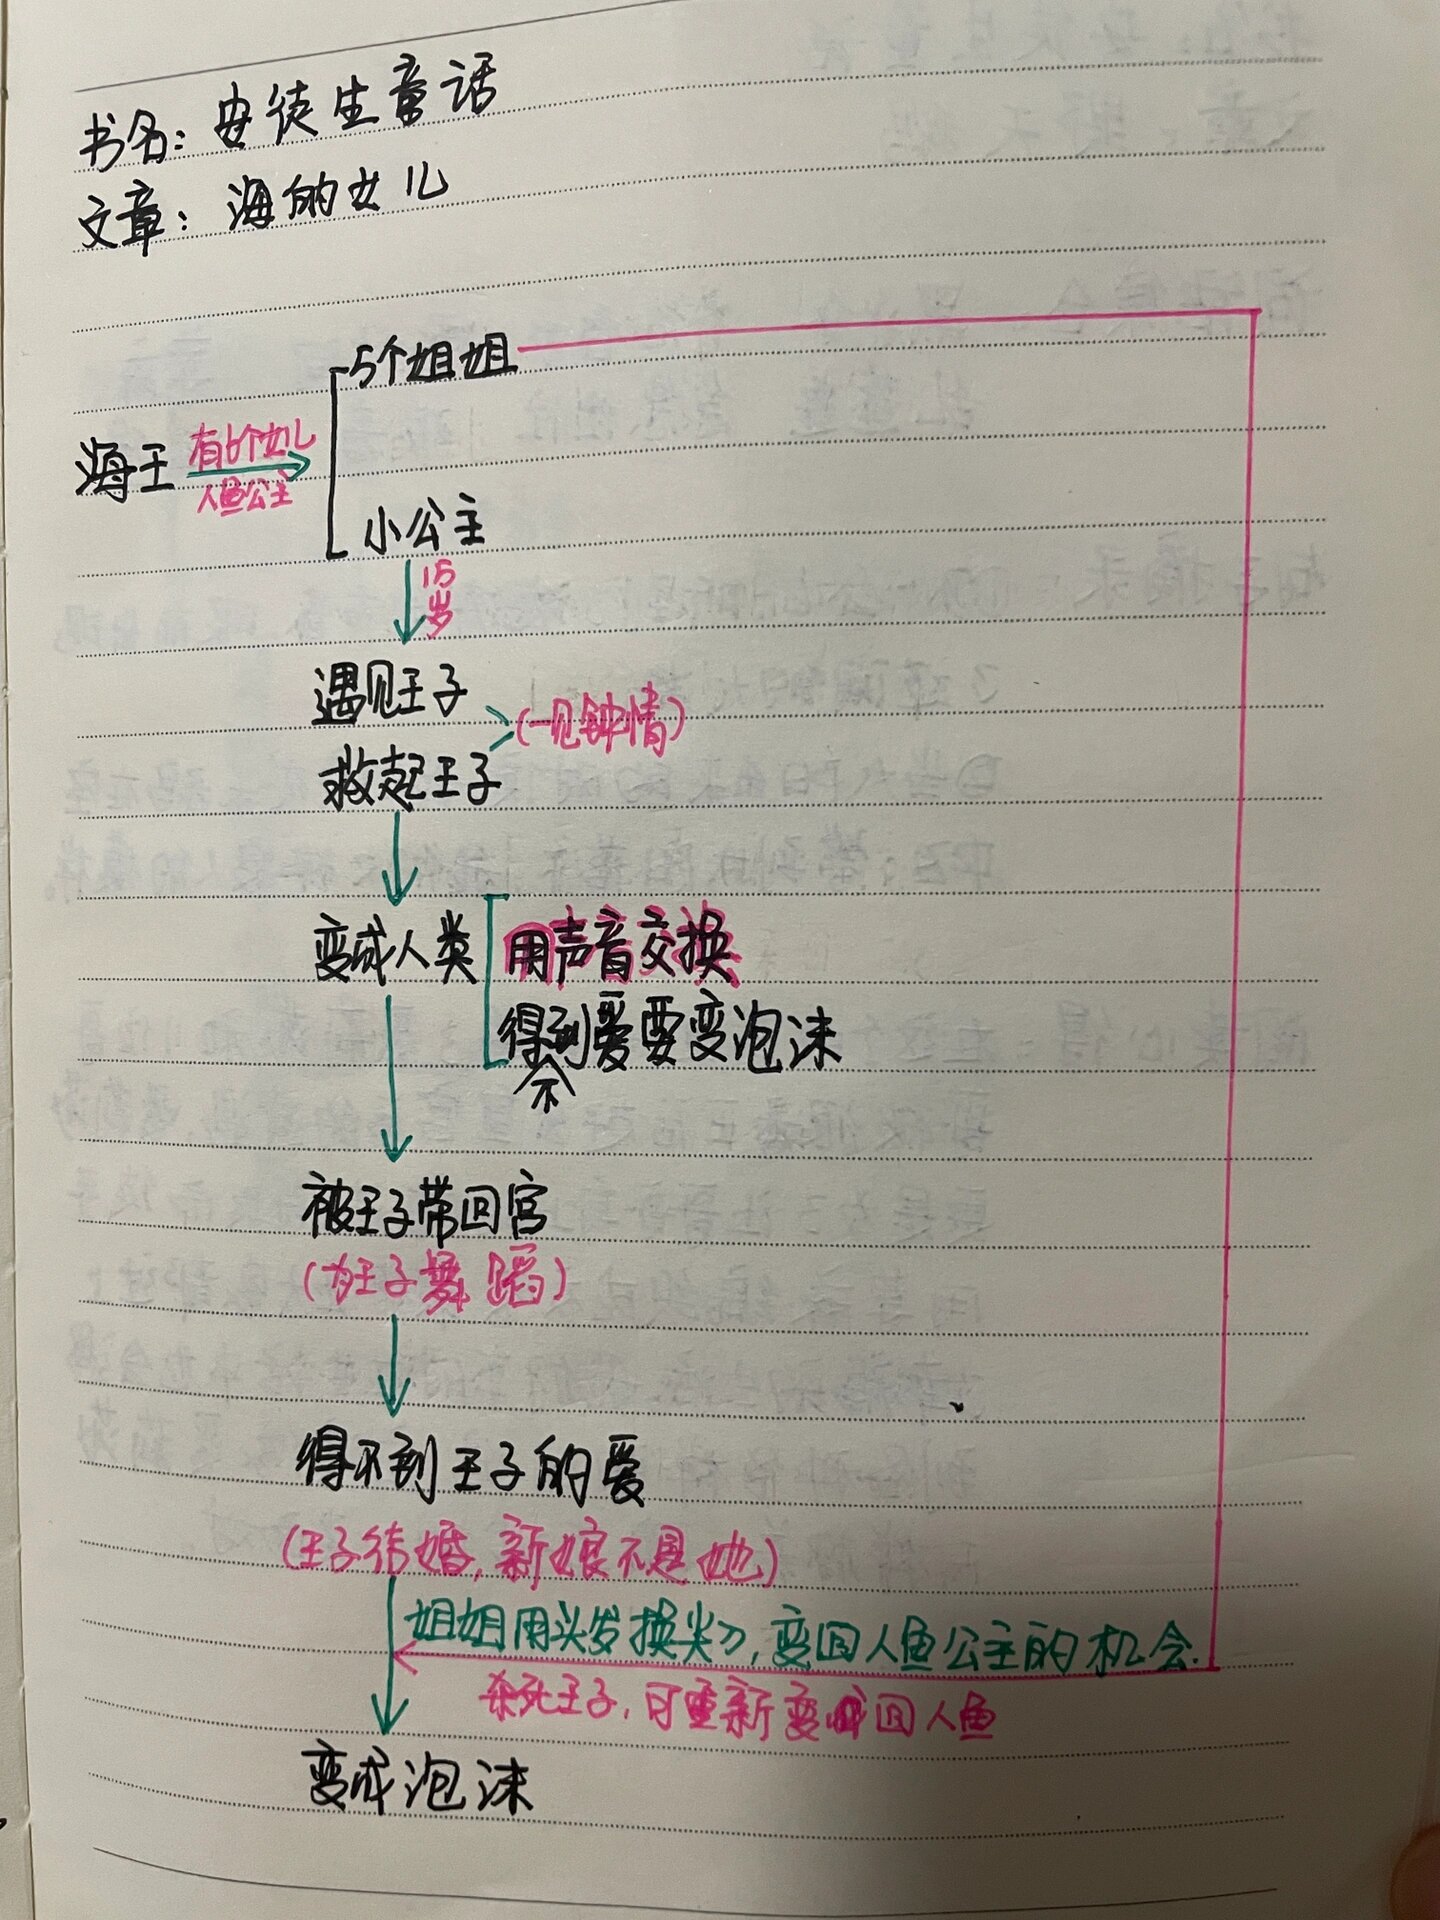 书名：安徒生童话
文章：海的女儿
5个姐姐
海王
有6个女儿
人鱼公主
小公主
15
岁
遇见王子
(一见钟情)
救起王子
变成人类
用声音交换
得不到爱要变泡沫
被王子带回宫
(为王子舞蹈)
得不到王子的爱
(王子结婚，新娘不是她)
姐姐用头发换尖刀，变回人鱼公主的机会.
杀死王子，可重新变回人鱼
变成泡沫